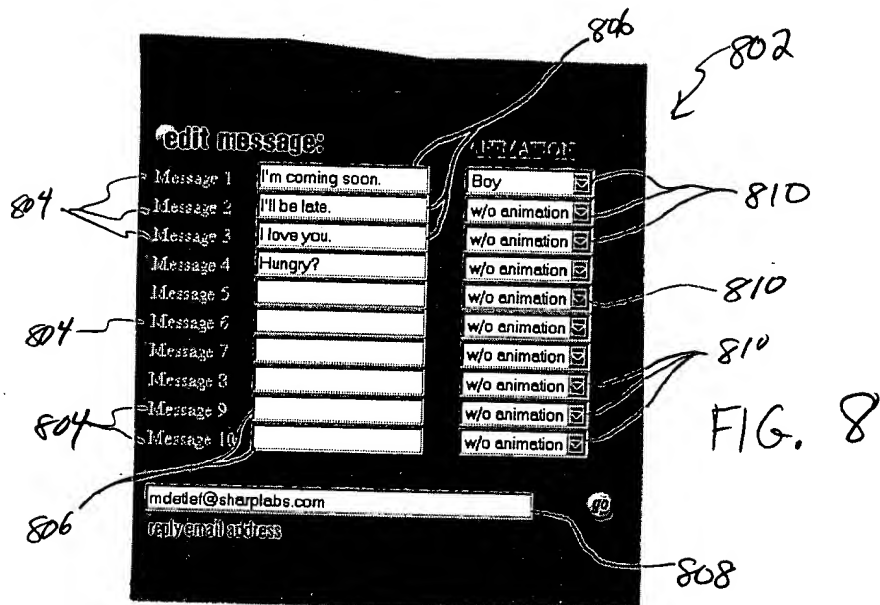 806
802
edit message:
ANIMATION
Message 1 I'm coming soon. Boy
804 Message 2 I'll be late. w/o animation 810
Message 3 I love you. w/o animation
Message 4 Hungry? w/o animation
Message 5 w/o animation 810
804 Message 6 w/o animation
Message 7 w/o animation 810
Message 8 w/o animation
804 Message 9 w/o animation FIG. 8
Message 10 w/o animation
806 mdetlef@sharplabs.com go
reply email address
808